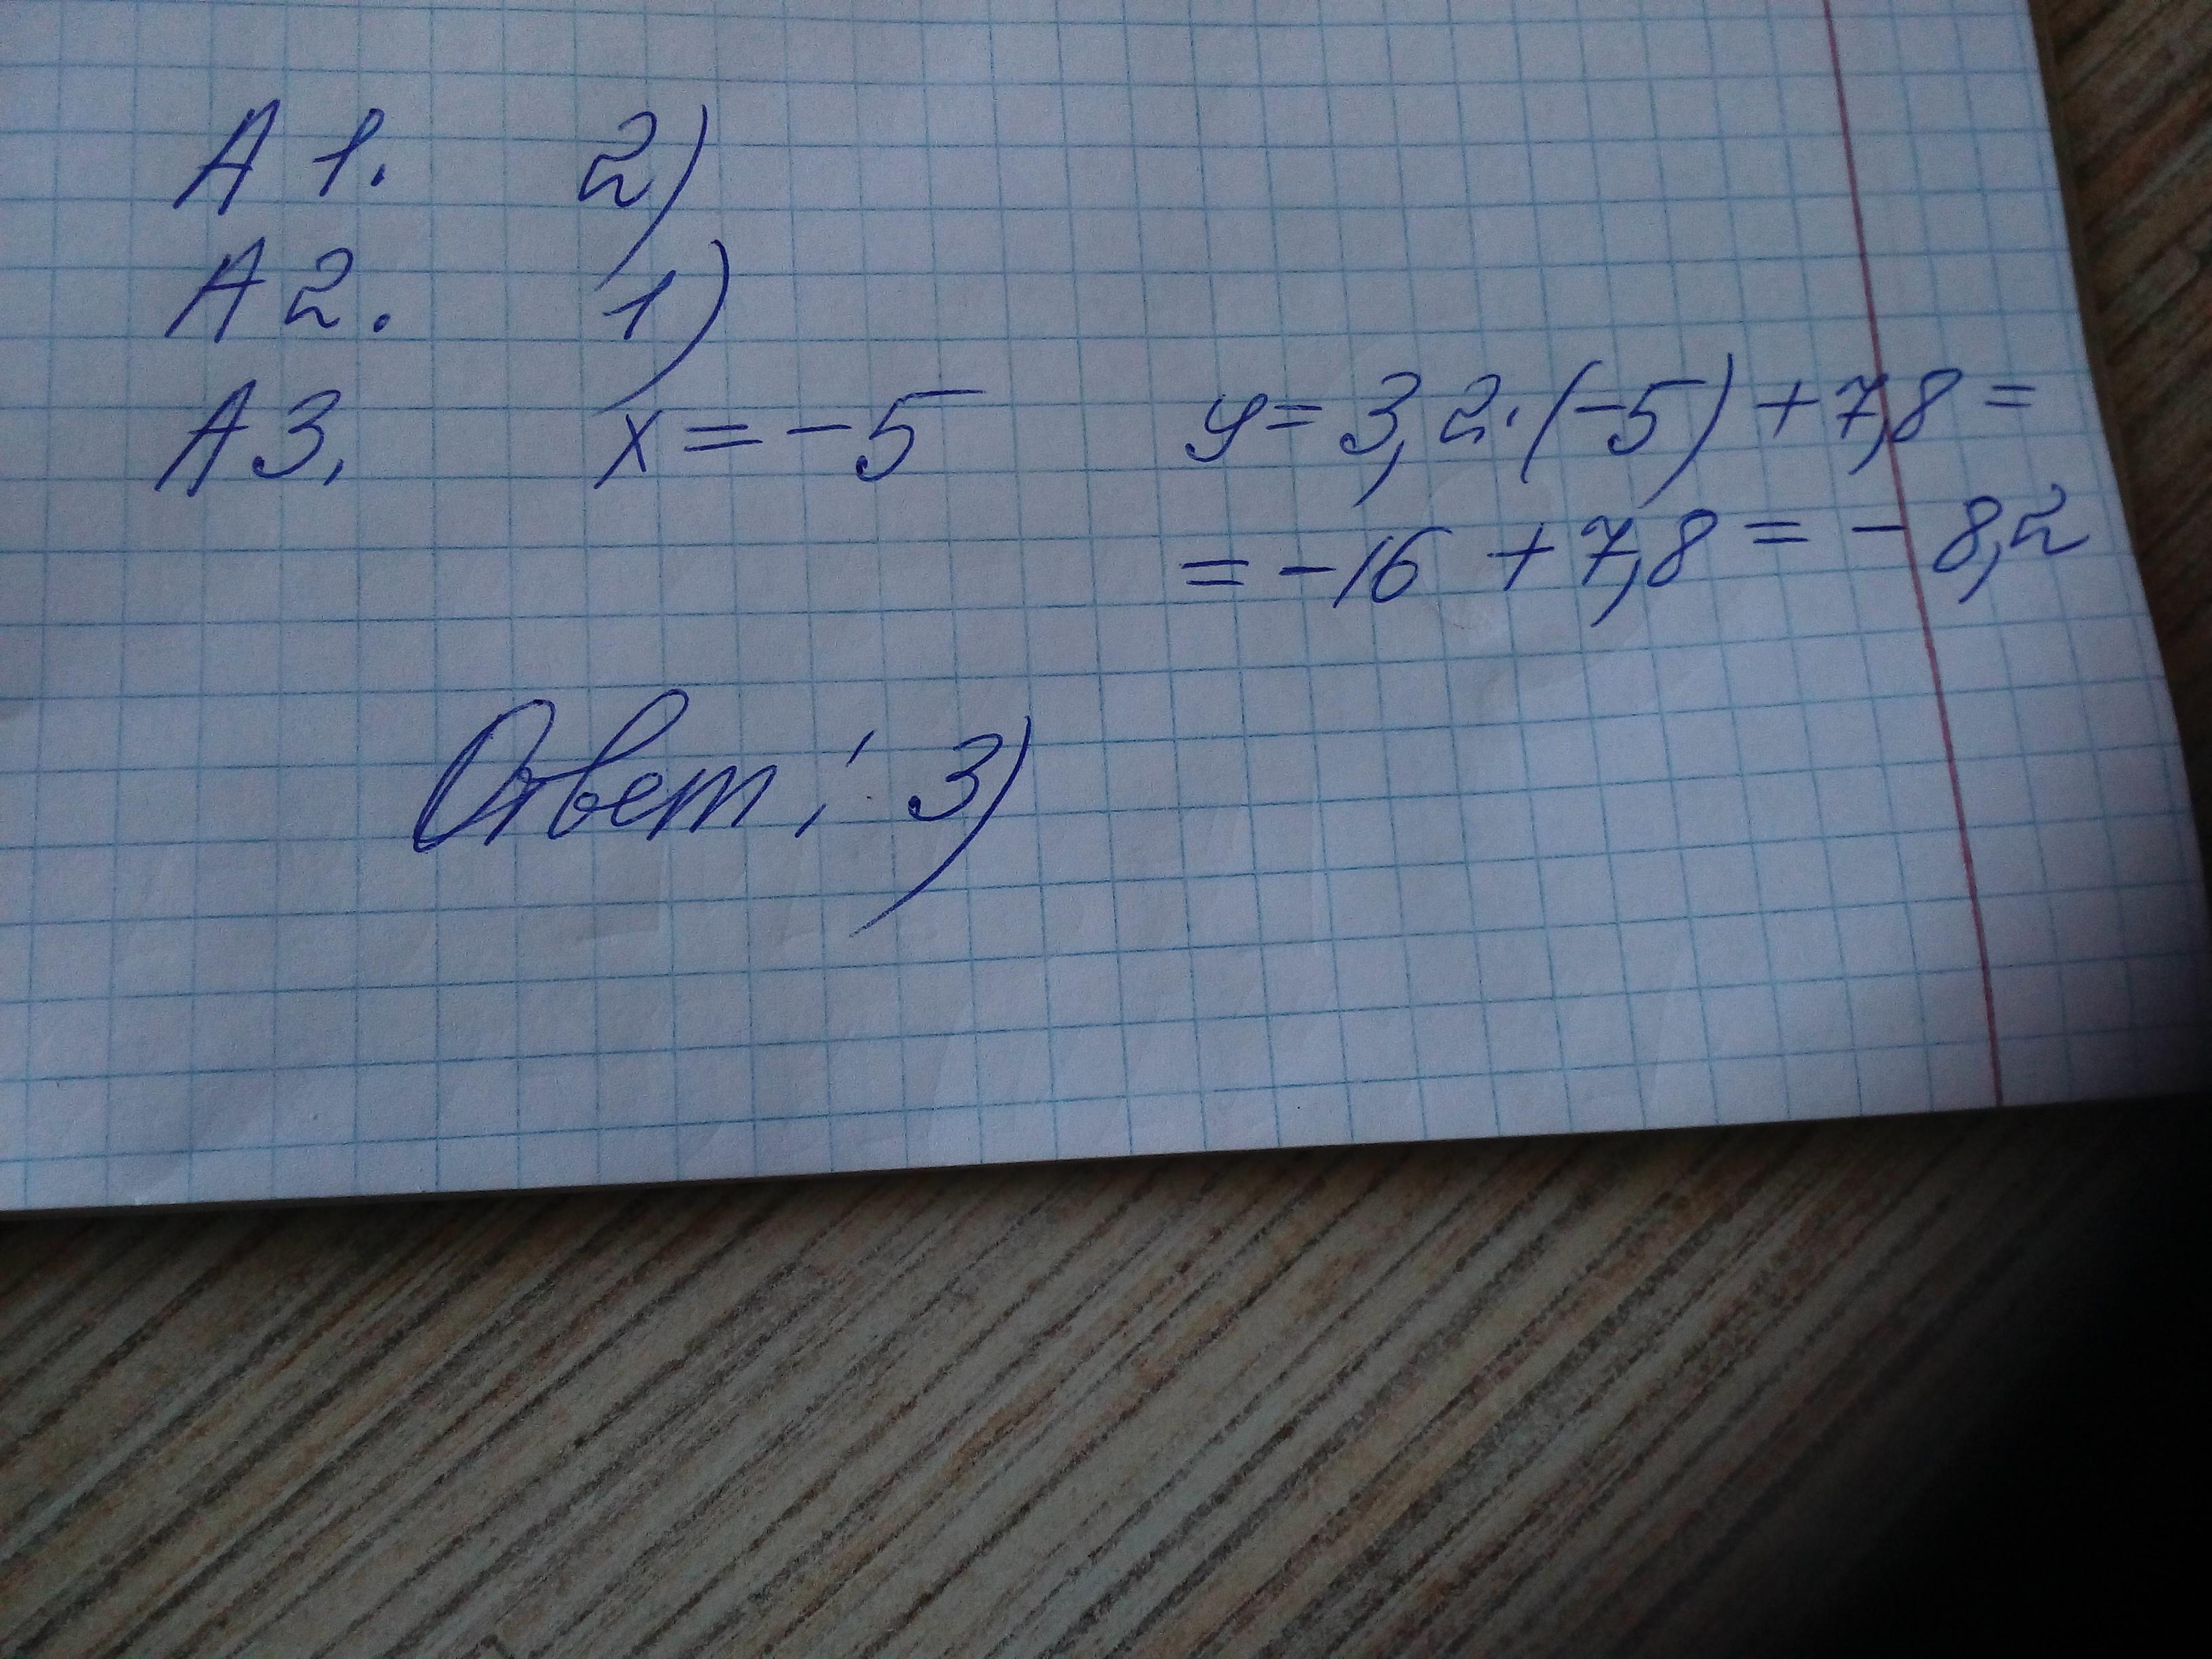 А1. 2)
А2. 1)
А3. x = -5 y = 3,2·(-5) + 7,8 =
= -16 + 7,8 = - 8,2
Ответ: 3)